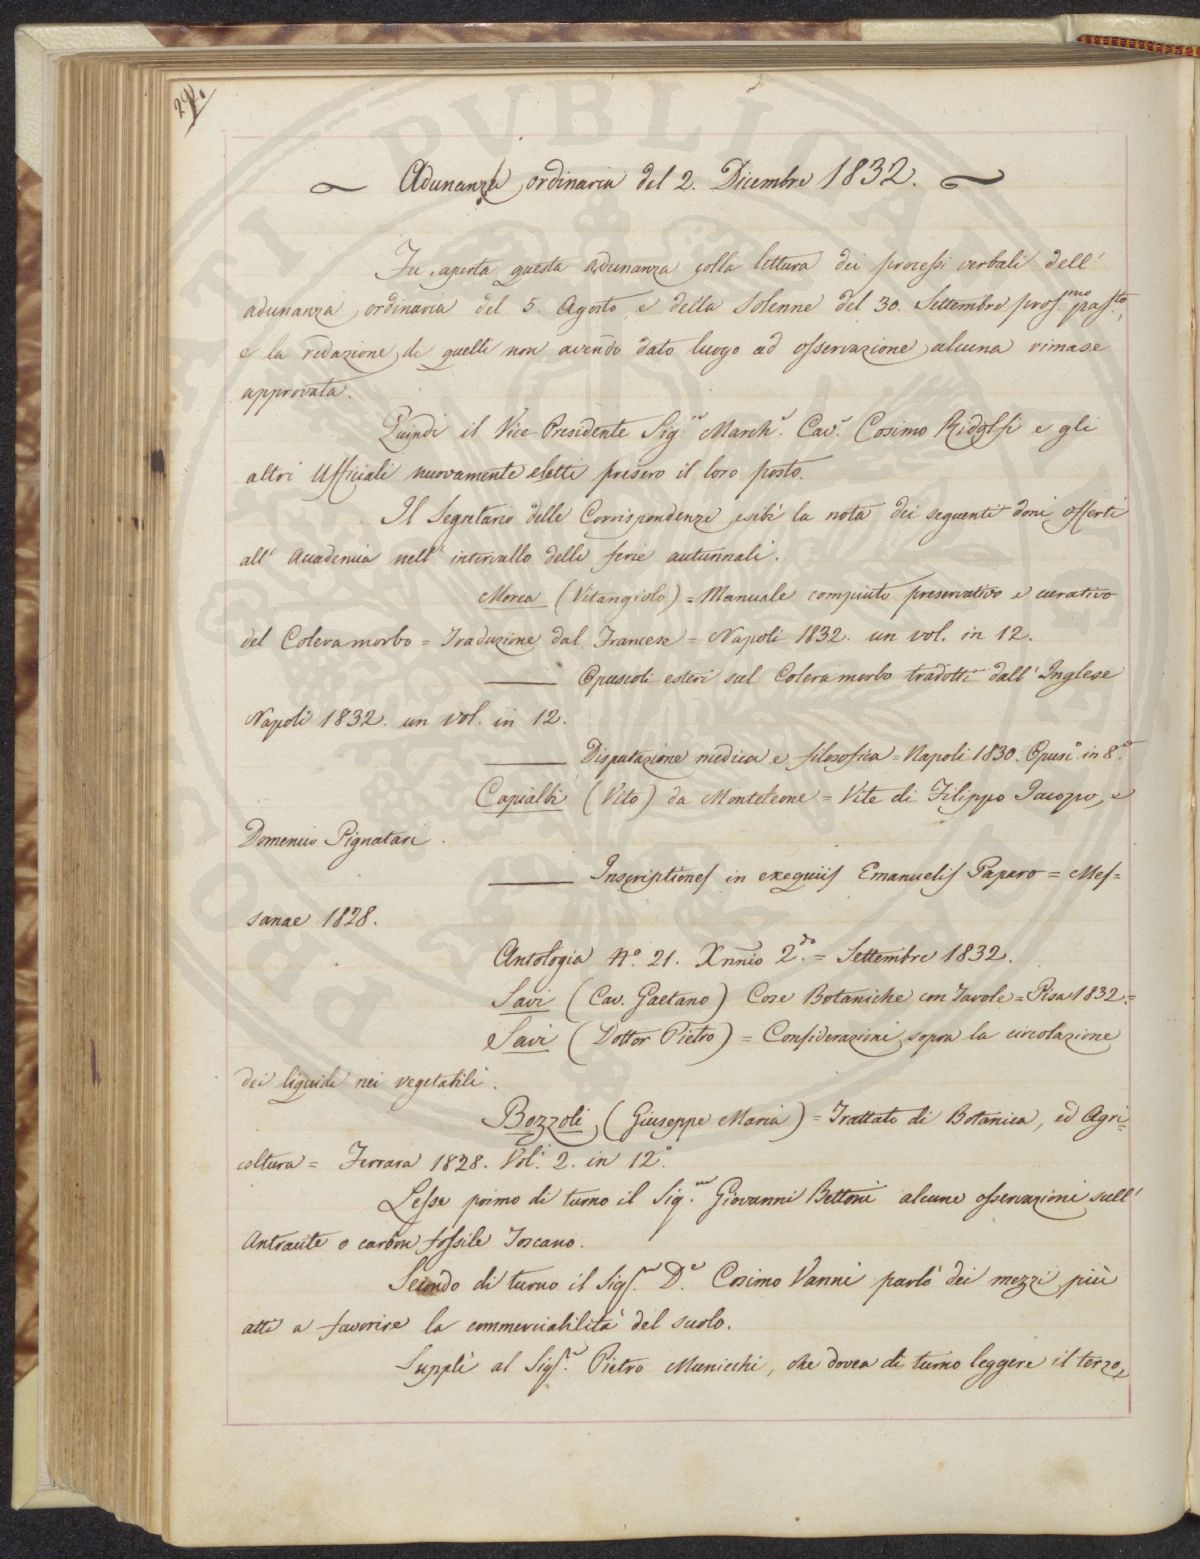 Adunanza ordinaria del 2. Dicembre 1832.
Fu aperta questa adunanza colla lettura dei processi verbali dell'
adunanza ordinaria del 5. Agosto, e della solenne del 30. Settembre pros.mo pas.to,
e la redazione di quelli non avendo dato luogo ad osservazione alcuna rimase
approvata.
Quindi il Vice-Presidente Sig.r March.e Cav.e Cosimo Ridolfi e gli
altri Ufficiali nuovamente eletti presero il loro posto.
Il Segretario delle Corrispondenze esibì la nota dei seguenti doni offerti
all' Accademia nell' intervallo delle ferie autunnali.
Morea (Vitangiolo) = Manuale compiuto preservativo e curativo
del Colera morbo = Traduzione dal Francese = Napoli 1832. un vol. in 12.
Opuscoli esteri sul Colera morbo tradotti dall' Inglese
Napoli 1832. un vol. in 12.
Disputazione medica e filosofica = Napoli 1830. Opusc.o in 8.vo
Capialbi (Vito) da Monteleone = Vite di Filippo Jacopo, e
Domenico Pignatari.
Inscriptiones in exequiis Emanuelis Paparo = Mes=
sanae 1828.
Antologia N.o 21. Xnnio 2.do = Settembre 1832.
Savi (Cav. Gaetano) Cose Botaniche con Tavole = Pisa 1832. =
Savi (Dottor Pietro) = Considerazioni sopra la circolazione
dei liquidi nei vegetabili.
Bozzoli (Giuseppe Maria) = Trattato di Botanica, ed Agri=
coltura = Ferrara 1828. Vol.i 2. in 12.o
Lesse primo di turno il Sig.re Giovanni Bettoni alcune osservazioni sull'
Antracite o carbon fossile Toscano.
Secondo di turno il Sig.r D.r Cosimo Vanni parlò dei mezzi più
atti a favorire la commerciabilità del suolo.
Supplì al Sig.r Pietro Municchi, che dovea di turno leggere il terzo,